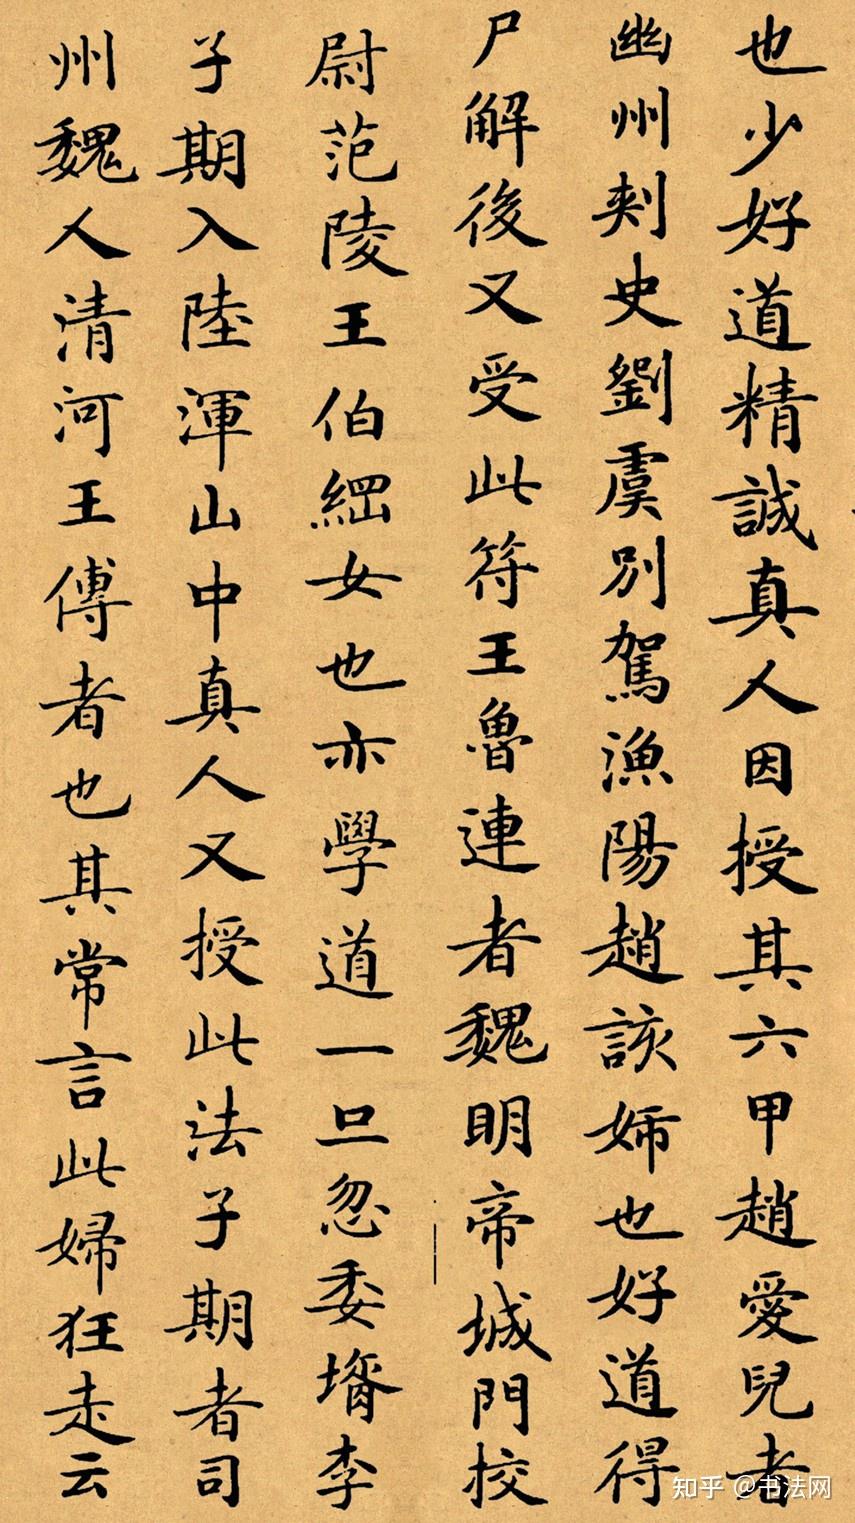 也少好道精誠真人因授其六甲趙愛兒者
幽州刾史劉虞別駕漁陽趙該姊也好道得
尸解後又受此符王魯連者魏明帝城門校
尉范陵王伯綱女也亦學道一旦忽委壻李
子期入陸渾山中真人又授此法子期者司
州魏人清河王傅者也其常言此婦狂走云
知乎 @书法网